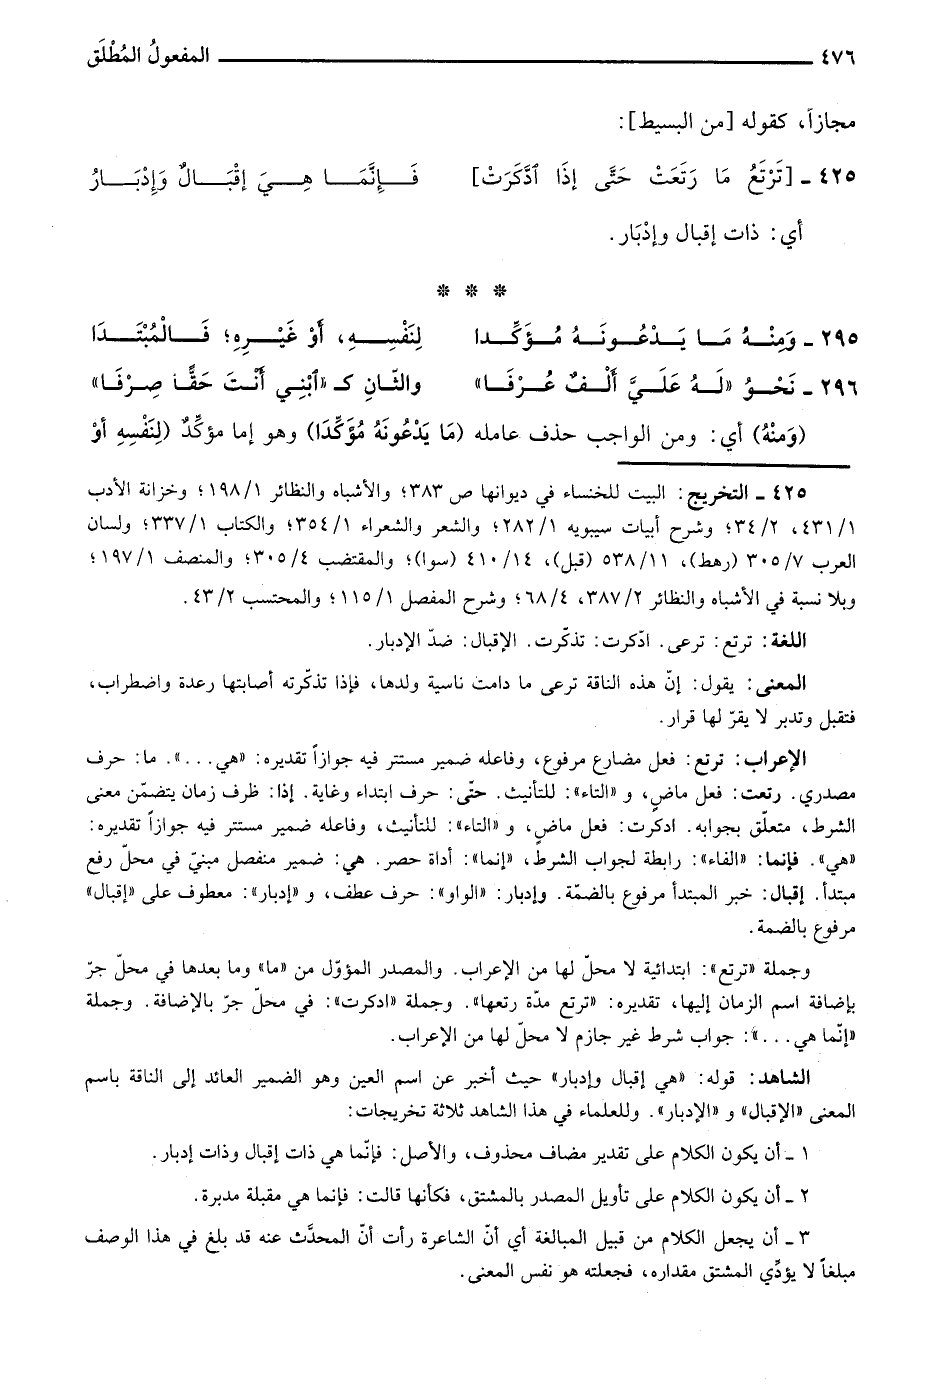 ٤٧٦ المفعولُ المُطْلَق
مجازاً، كقوله [من البسيط]:
٤٢٥ ـ [تَرْتَعُ مَا رَتَعَتْ حَتَّى إذَا ٱدَّكَرَتْ] فَــإِنَّمَــا هِــيَ إقْبَــالٌ وَإِدْبَــارُ
أي: ذات إقبال وإدْبَار.
* * *
٢٩٥ ـ وَمِنْـهُ مَـا يَـدْعُـونَـهُ مُـؤَكِّـدا لِنَفْسِـهِ، أَوْ غَيْـرِهِ؛ فَـالمُبْتَـدَا
٢٩٦ ـ نَحْـوُ «لَـهُ عَلَـيَّ أَلْـفٌ عُـرْفَـا» والثَّـانِ كـ «ٱبْنِي أَنْـتَ حَقًّـا صِـرْفَـا»
(وَمِنْهُ) أي: ومن الواجب حذف عامله (مَا يَدْعُونَهُ مُؤَكِّدَا) وهو إما مؤكِّدٌ (لِنَفْسِهِ أوْ
٤٢٥ ـ التخريج: البيت للخنساء في ديوانها ص ٣٨٣؛ والأشباه والنظائر ١٩٨/١؛ وخزانة الأدب
٤٣١/١، ٣٤/٢؛ وشرح أبيات سيبويه ٢٨٢/١؛ والشعر والشعراء ٣٥٤/١؛ والكتاب ٣٣٧/١؛ ولسان
العرب ٣٠٥/٧ (رهط)، ٥٣٨/١١ (قبل)، ٤١٠/١٤ (سوا)؛ والمقتضب ٣٠٥/٤؛ والمنصف ١٩٧/١؛
وبلا نسبة في الأشباه والنظائر ٣٨٧/٢، ٦٨/٤؛ وشرح المفصل ١١٥/١؛ والمحتسب ٤٣/٢.
اللغة: ترتع: ترعى. ادّكرت: تذكّرت. الإقبال: ضدّ الإدبار.
المعنى: يقول: إنّ هذه الناقة ترعى ما دامت ناسية ولدها، فإذا تذكّرته أصابتها رعدة واضطراب،
فتقبل وتدبر لا يقرّ لها قرار.
الإعراب: ترتع: فعل مضارع مرفوع، وفاعله ضمير مستتر فيه جوازاً تقديره: «هي...». ما: حرف
مصدري. رتعت: فعل ماضٍ، و «التاء»: للتأنيث. حتّى: حرف ابتداء وغاية. إذا: ظرف زمان يتضمّن معنى
الشرط، متعلّق بجوابه. ادكرت: فعل ماضٍ، و «التاء»: للتأنيث، وفاعله ضمير مستتر فيه جوازاً تقديره:
«هي». فإنما: «الفاء»: رابطة لجواب الشرط، «إنما»: أداة حصر. هي: ضمير منفصل مبنيّ في محلّ رفع
مبتدأ. إقبال: خبر المبتدأ مرفوع بالضمّة. وإدبار: «الواو»: حرف عطف، و «إدبار»: معطوف على «إقبال»
مرفوع بالضمة.
وجملة «ترتع»: ابتدائية لا محلّ لها من الإعراب. والمصدر المؤوّل من «ما» وما بعدها في محلّ جرّ
بإضافة اسم الزمان إليها، تقديره: «ترتع مدّة رتعها». وجملة «ادكرت»: في محلّ جرّ بالإضافة. وجملة
«إنّما هي...»: جواب شرط غير جازم لا محلّ لها من الإعراب.
الشاهد: قوله: «هي إقبال وإدبار» حيث أخبر عن اسم العين وهو الضمير العائد إلى الناقة باسم
المعنى «الإقبال» و «الإدبار». وللعلماء في هذا الشاهد ثلاثة تخريجات:
١ ـ أن يكون الكلام على تقدير مضاف محذوف، والأصل: فإنّما هي ذات إقبال وذات إدبار.
٢ ـ أن يكون الكلام على تأويل المصدر بالمشتق، فكأنها قالت: فإنما هي مقبلة مدبرة.
٣ ـ أن يجعل الكلام من قبيل المبالغة أي أنّ الشاعرة رأت أنّ المحدَّث عنه قد بلغ في هذا الوصف
مبلغاً لا يؤدِّي المشتق مقداره، فجعلته هو نفس المعنى.